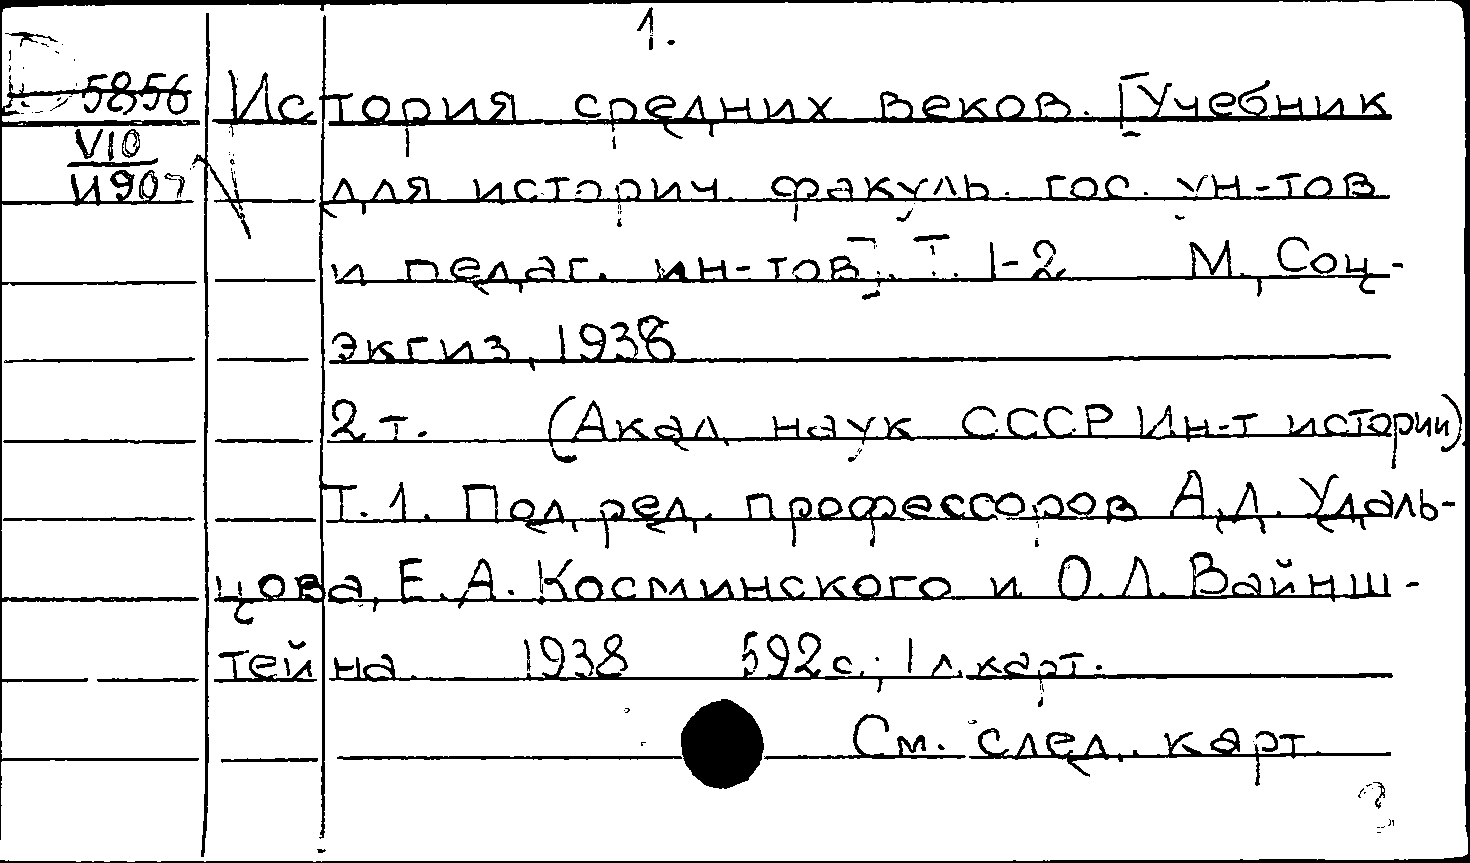 1.
5856 История средних веков. [Учебник
VIO
И907 для историч. факуль. гос. ун-тов
и педаг. ин-тов]. Т. 1-2 М., Соц-
экгиз, 1938
2 т. (Акад. наук СССР Ин-т истории)
Т. 1. Под ред. профессоров А.Д. Удаль-
цова, Е.А. Косминского и О.Л. Вайнш-
тейна. 1938 592 с.; 1 л. карт.
См. след. карт.